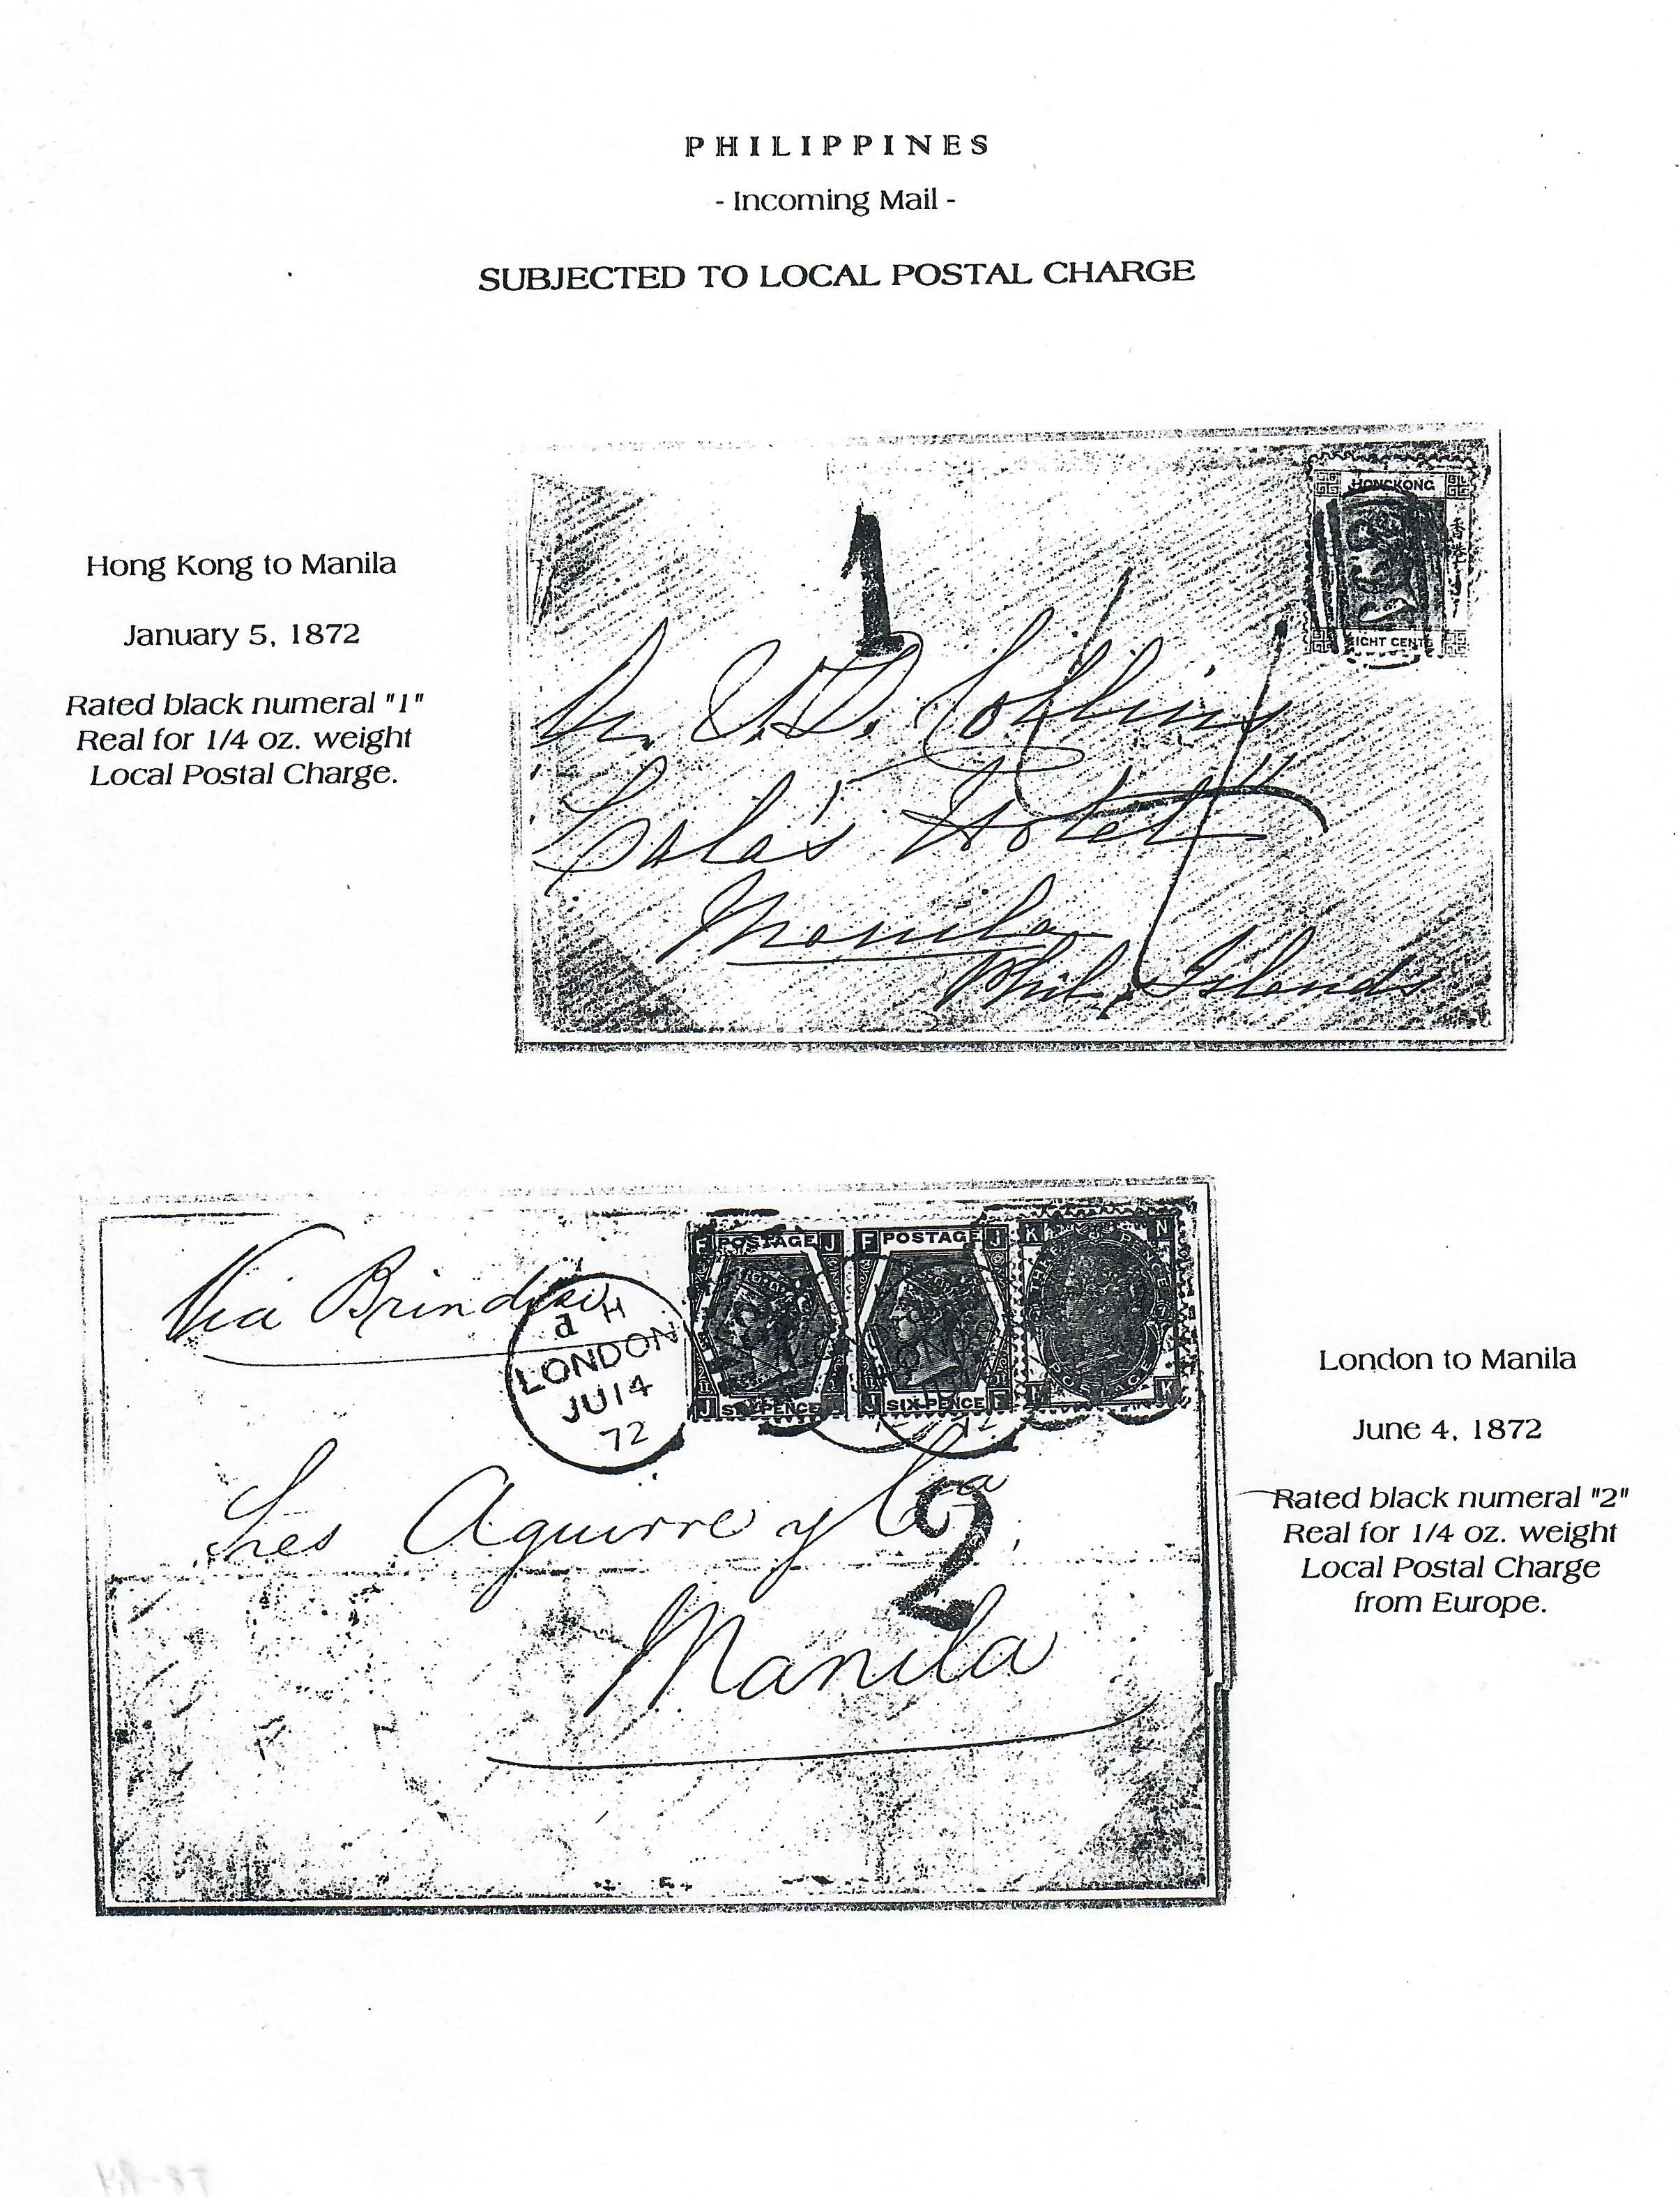 PHILIPPINES
- Incoming Mail -
SUBJECTED TO LOCAL POSTAL CHARGE
Hong Kong to Manila
January 5, 1872
Rated black numeral "1"
Real for 1/4 oz. weight
Local Postal Charge.
HONGKONG
香港
EIGHT CENTS
B62
1
Collins
Lala's Hotel
Manila
Phil. Islands
Via Brindisi
d H
LONDON
JU14
72
F POSTAGE J
J SIX PENCE F
F POSTAGE J
J SIX PENCE F
K N
THREE PENCE
POSTAGE
N K
Sres Aguirre y Cia
2
Manila
London to Manila
June 4, 1872
Rated black numeral "2"
Real for 1/4 oz. weight
Local Postal Charge
from Europe.